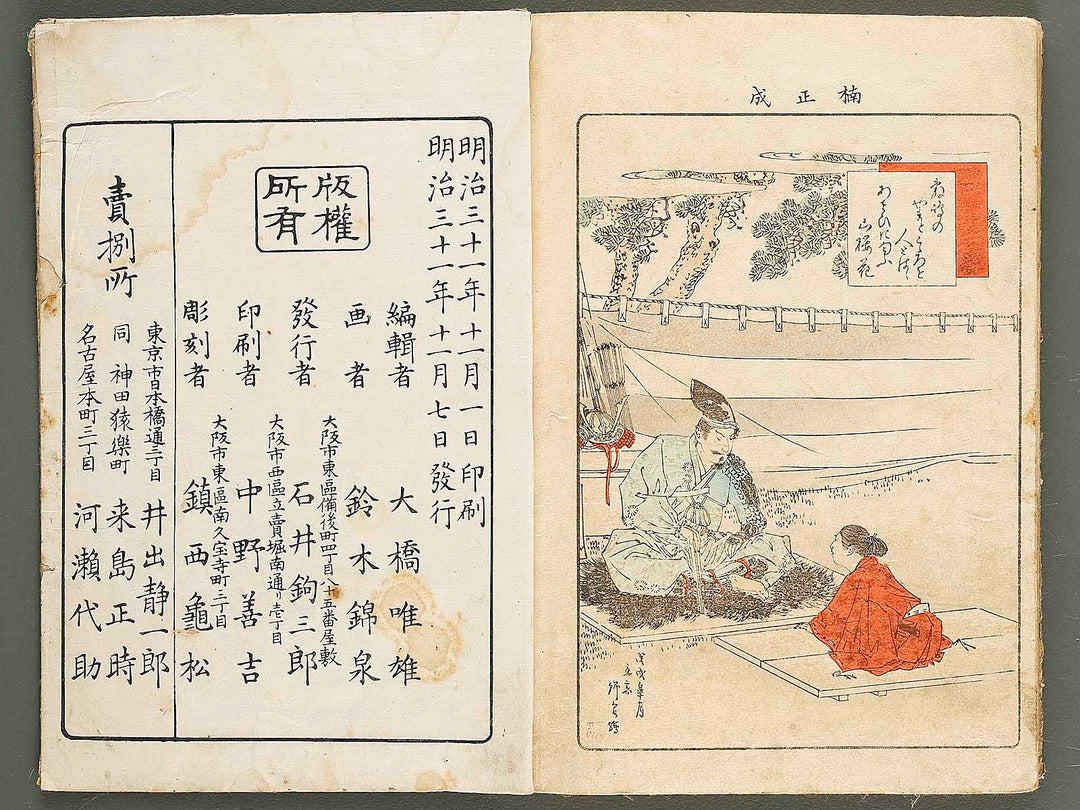 楠正成
山桜花
明治三十一年十一月一日印刷
明治三十一年十一月七日發行
版權
所有
編輯者 大橋唯雄
画者 鈴木錦泉
大阪市東區備後町四丁目八十五番屋敷
發行者 石井鉤三郎
大阪市西區立賣堀南通り壱丁目
印刷者 中野善吉
大阪市東區南久宝寺町三丁目
彫刻者 鎮西龜松
賣捌所
東京市日本橋通三丁目 井出静一郎
同 神田猿樂町 来島正時
名古屋本町三丁目 河瀬代助